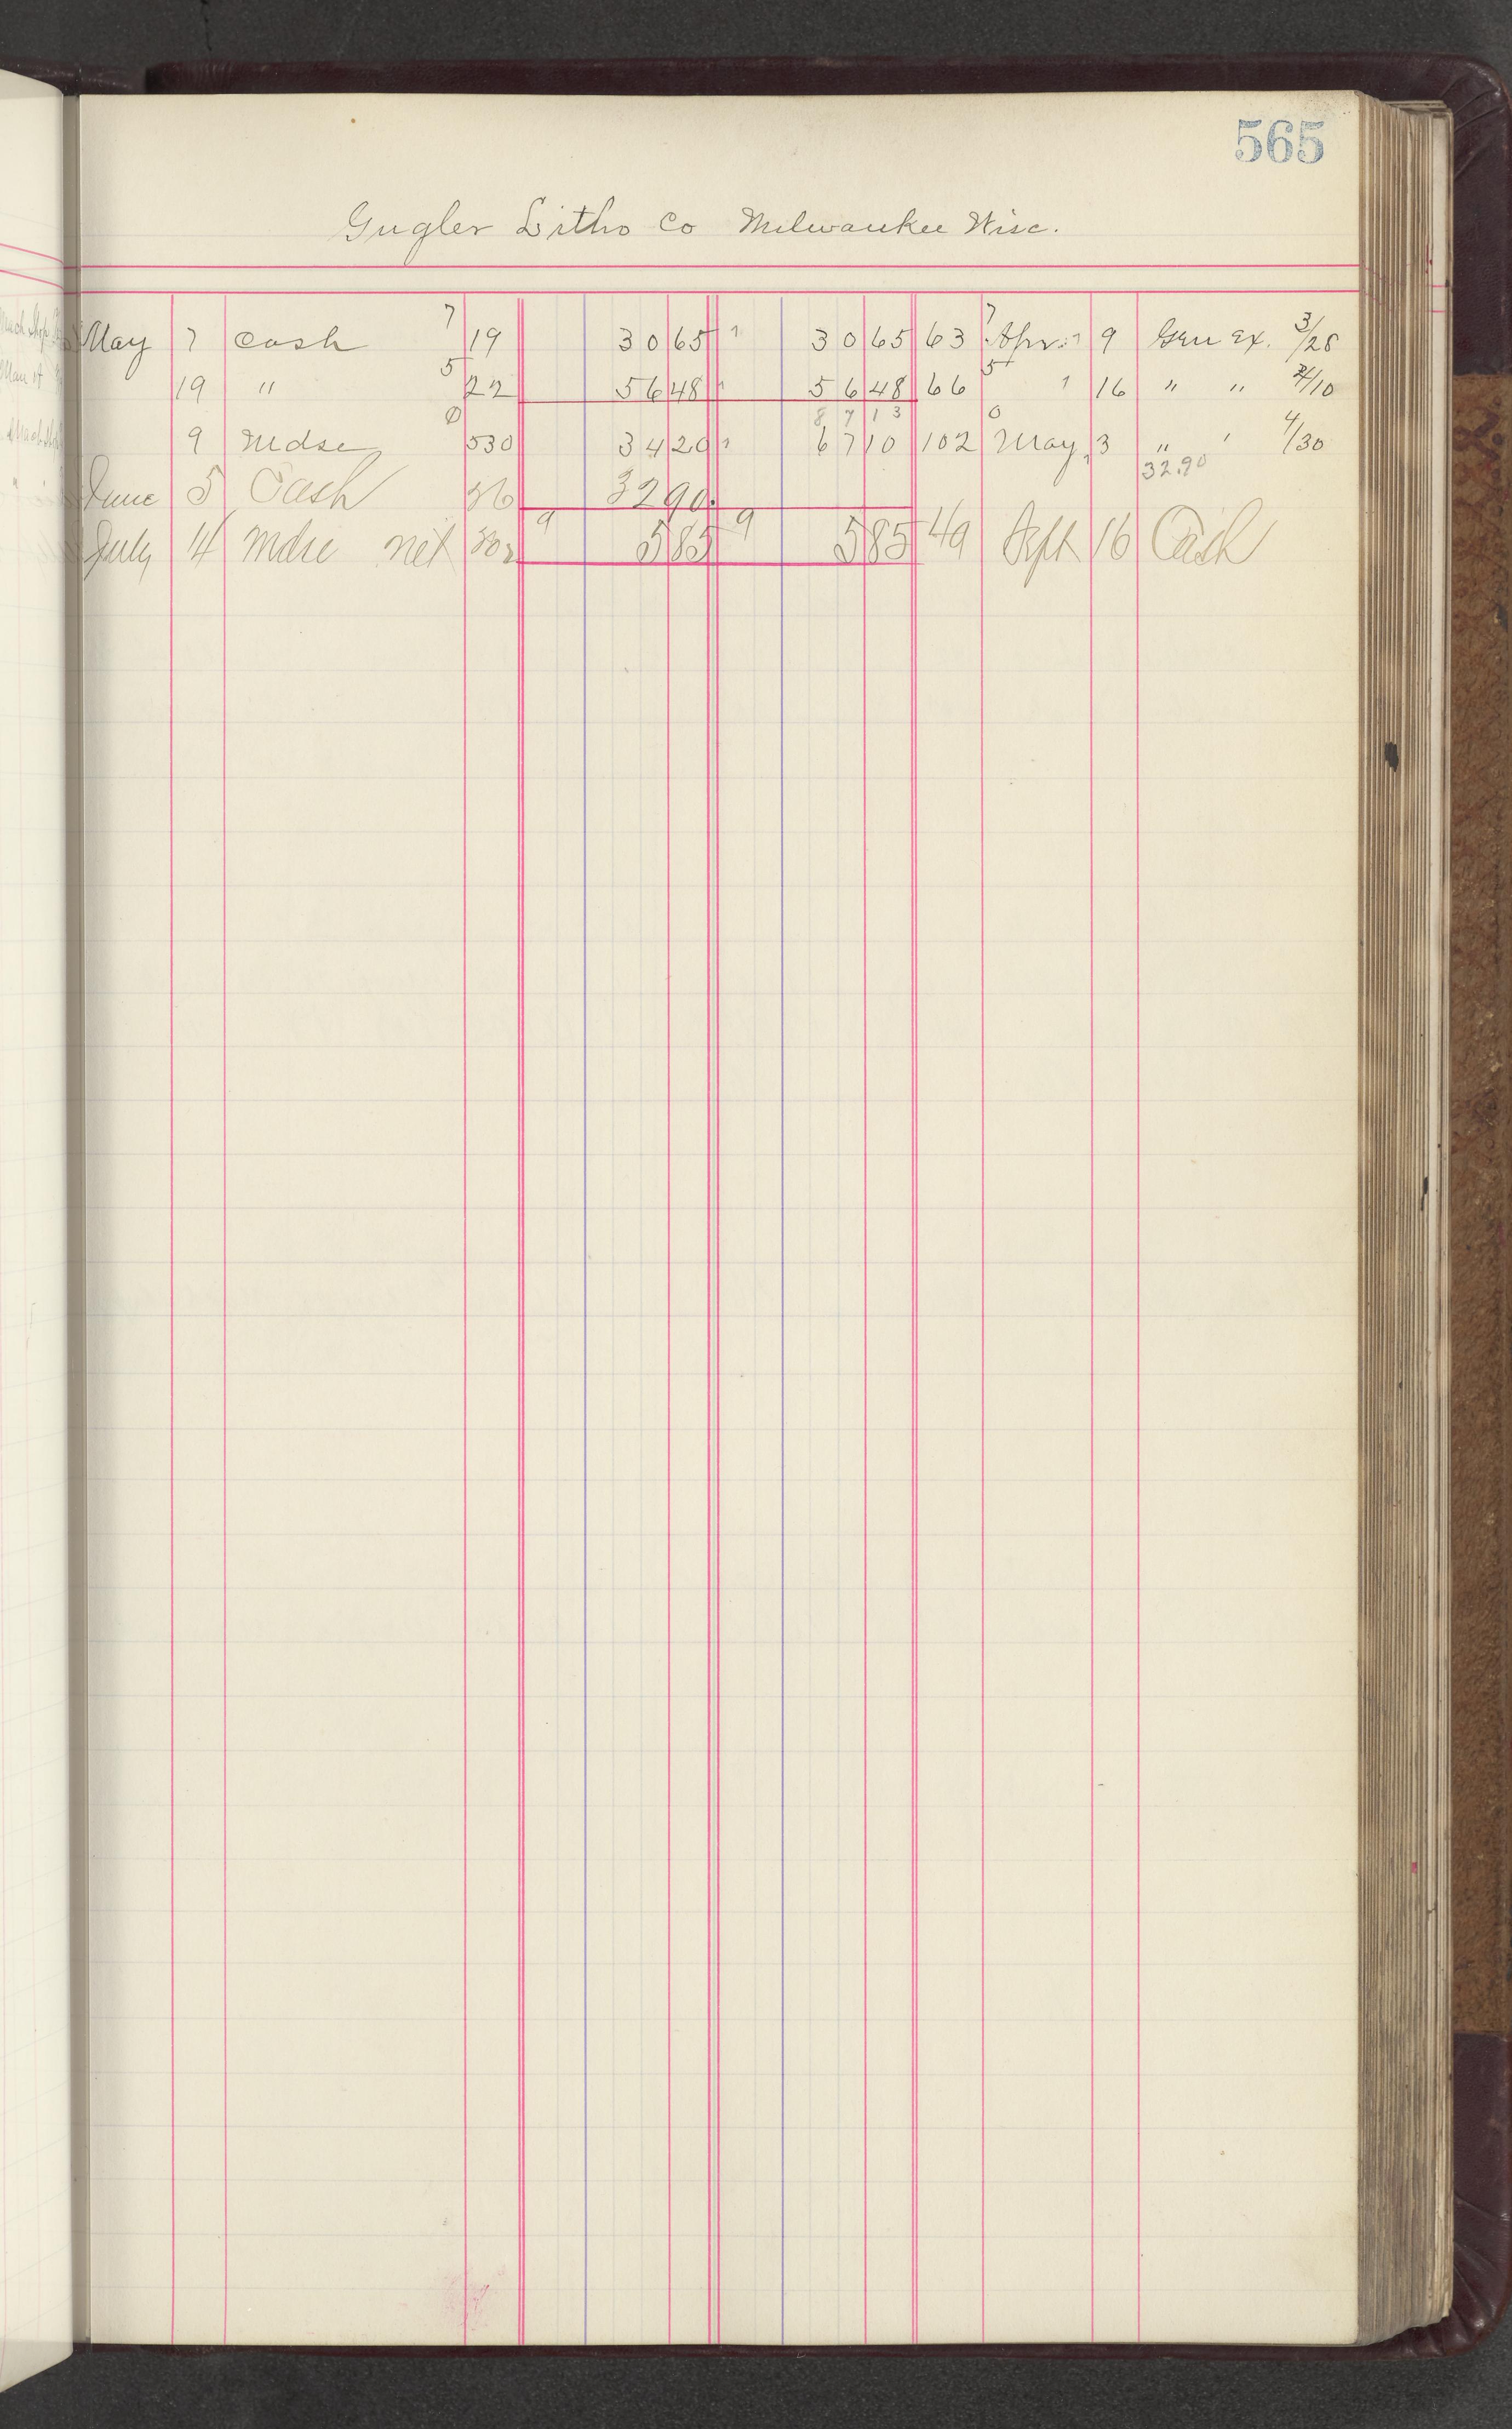 565
Gugler Litho Co Milwaukee Wisc.
May 7 Cash 7 19 30 65 1 30 65 63 7 Apr. 9 Gen Ex. 3/28
19 " 5 22 56 48 1 56 48 66 5 1 16 " " 4/10
87 13
9 Mdse 0 530 34 20 1 67 10 102 0 May 3 " ' 4/30
32.90
June 5 Cash 36 32 90
July 14 Mdse net 9 5 85 9 5 85 49 Sept 16 Cash